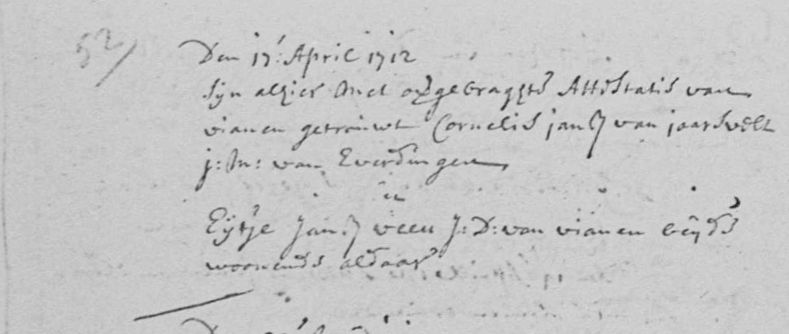 52/
Den 17: April 1712
Sijn alhier Met opgebragte Attestatis van
vianen getrouwt Cornelis jansz van jaarsvelt
j: M: van Everdingen
en
Eijtje Jansz veen J: D: van vianen beijde
woonende aldaar